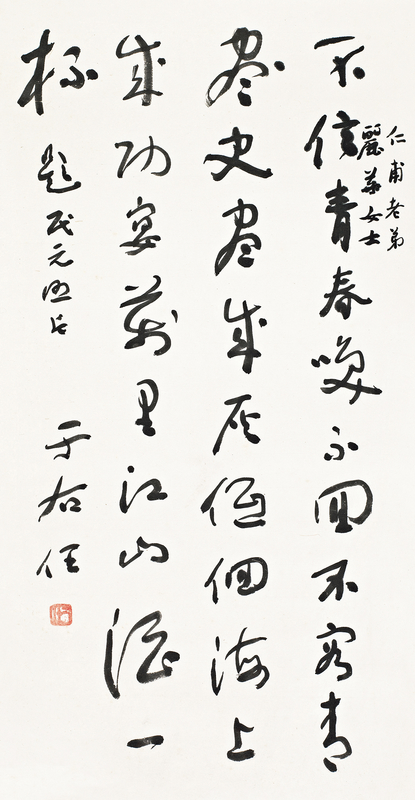 仁甫老弟
麗華女士
不信青春喚不回不容青
盡史盡成灰低佪海上
成功宴萬里江山酒一
杯
題民元照片
于右任